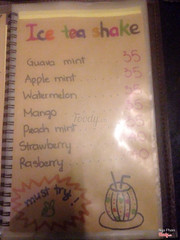 Ice tea shake
Guava mint 35
Apple mint 35
Watermelon 35
Mango 35
Peach mint 35
Strawberry
Rasberry
Foody